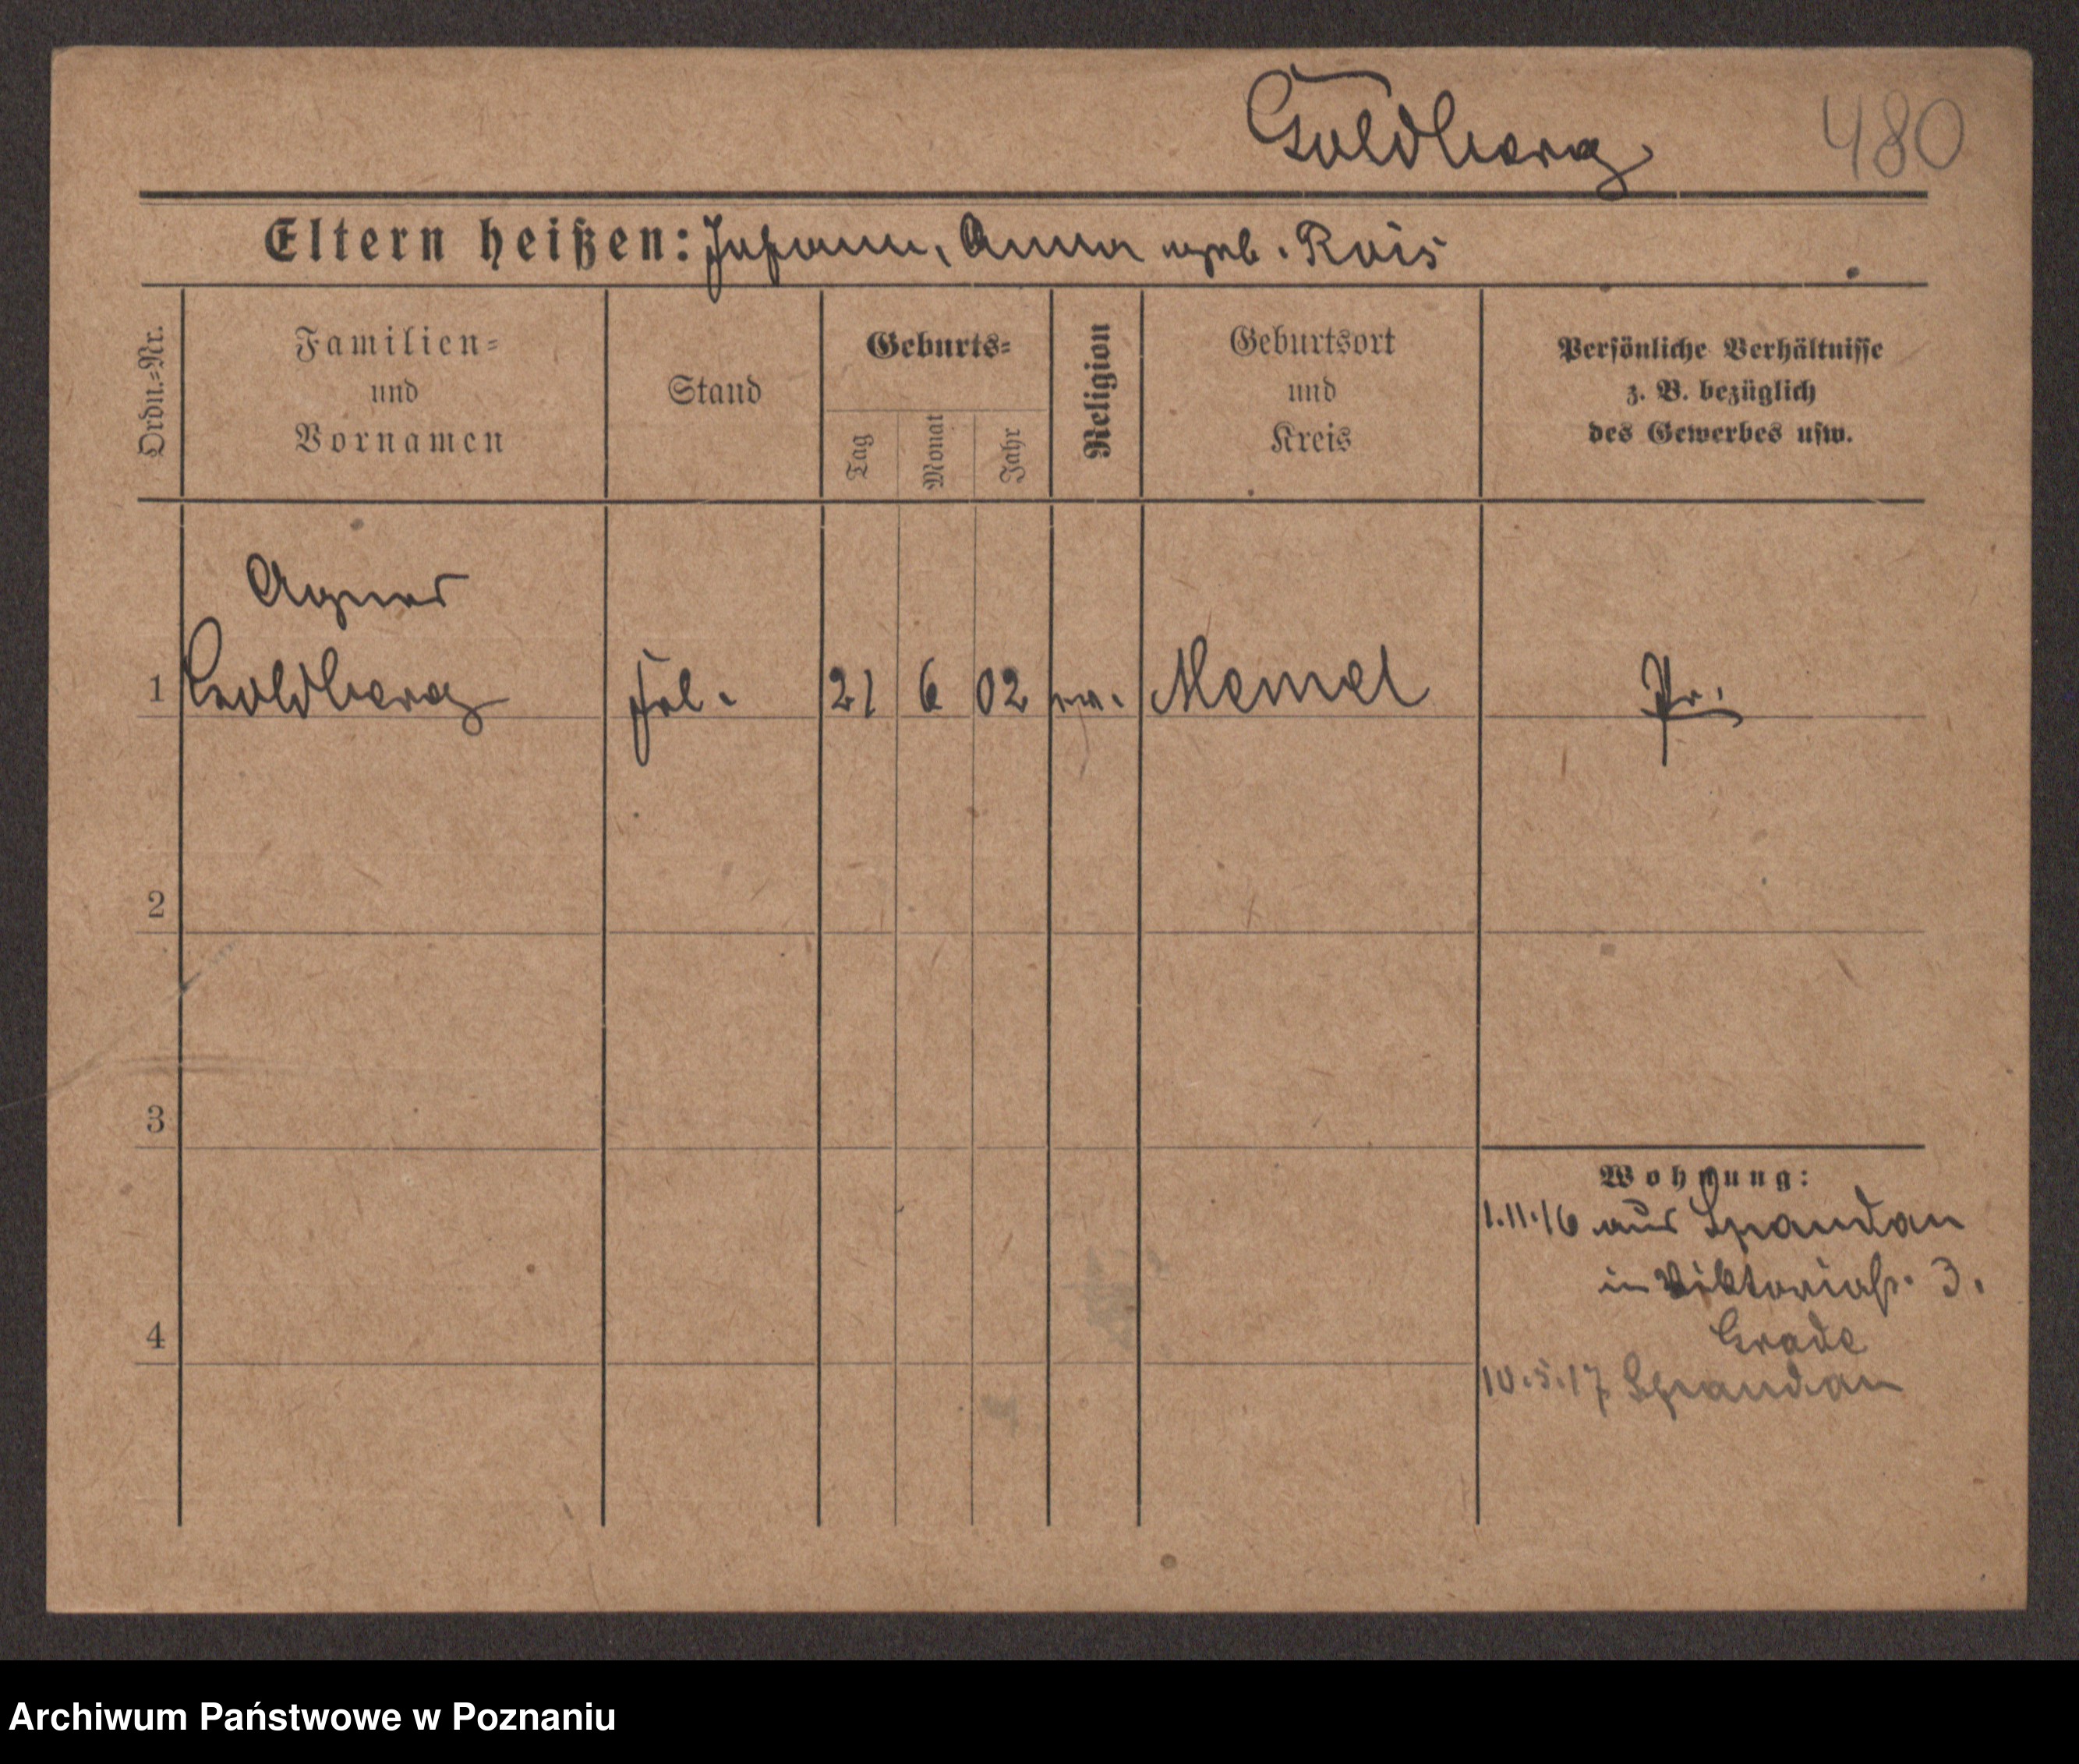 Goldberg 480
Eltern heißen: Johann, Anna geb. Rois
Ordn.=Nr.
Familien=
und
Vornamen
Stand
Geburts=
Tag
Monat
Jahr
Religion
Geburtsort
und
Kreis
Persönliche Verhältnisse
z. B. bezüglich
des Gewerbes usw.
Agnes
1 Goldberg Frl. 21 6 02 ev. Memel Pr.
2
3
Wohnung:
1.11.16 aus Spandau
in Viktoriastr. 3.
Grade
4
10.5.17 Spandau
Archiwum Państwowe w Poznaniu